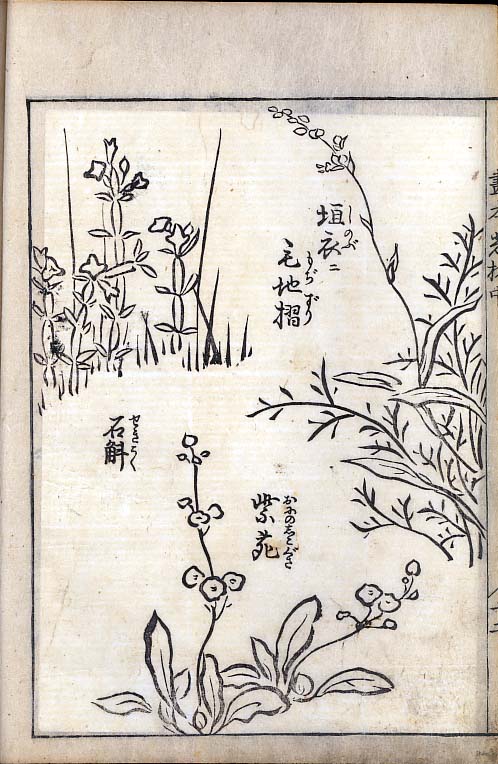 垣衣ニ
しのぶ
毛地摺
もぢずり
紫苑
おにのしこぐさ
石斛
せきこく